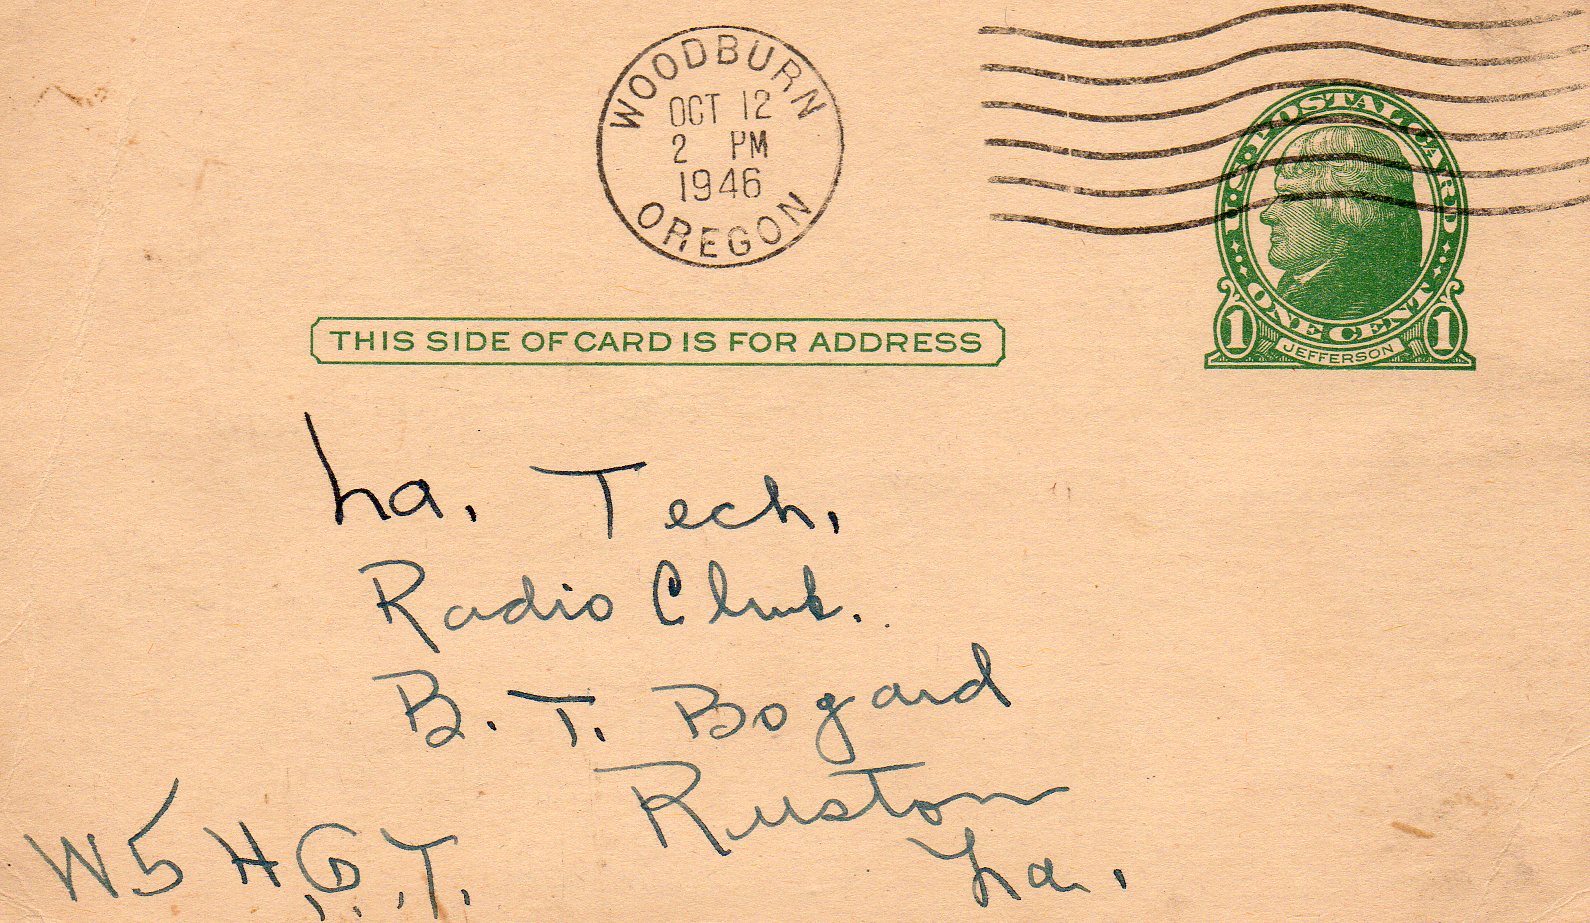 WOODBURN
OCT 12
2 PM
1946
OREGON
U.S. POSTAL CARD
ONE CENT
1 JEFFERSON 1
THIS SIDE OF CARD IS FOR ADDRESS
La. Tech.
Radio Club.
B. T. Bogard
Ruston
La.
W5HGT.